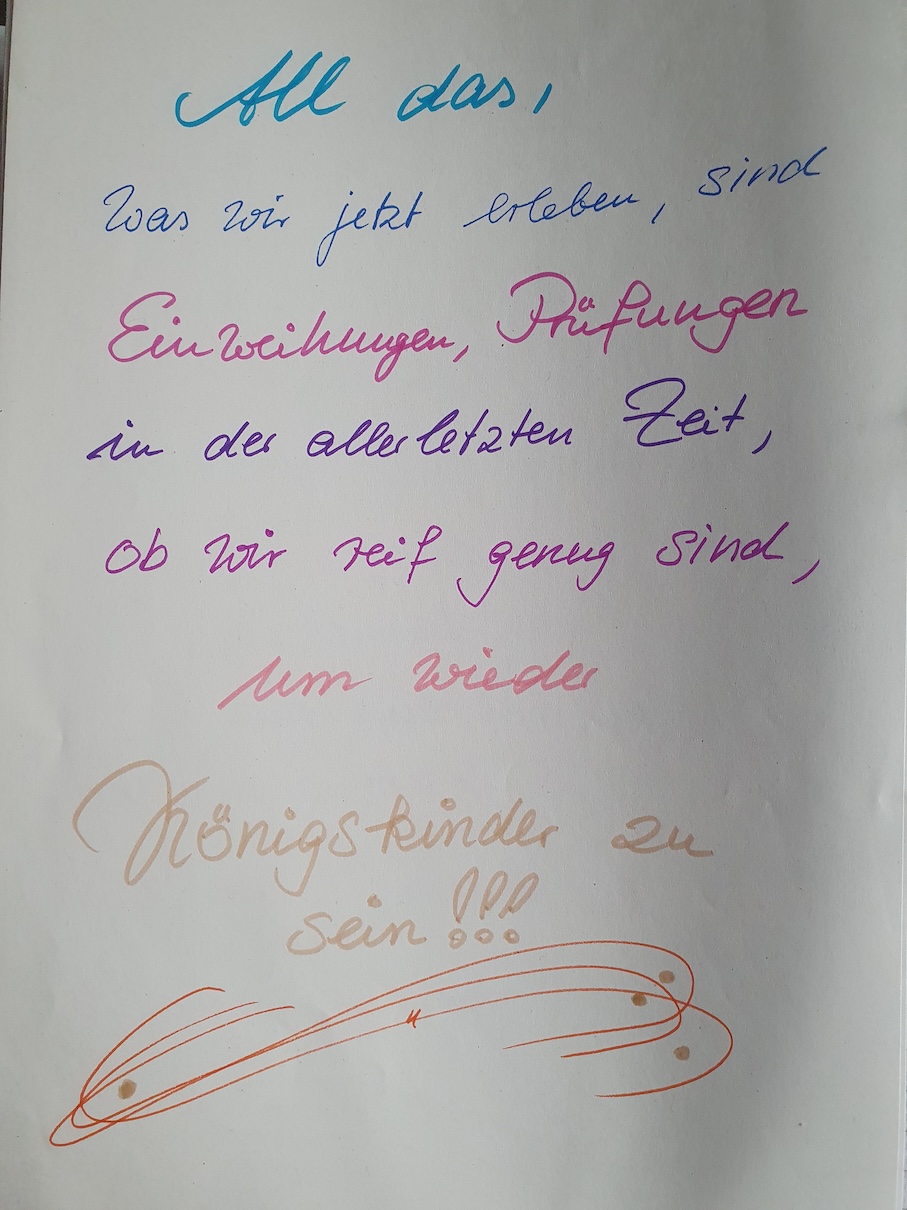 All das,
was wir jetzt erleben, sind
Einweihungen, Prüfungen
in der allerletzten Zeit,
ob wir reif genug sind,
um wieder
Königskinder zu
sein!!!